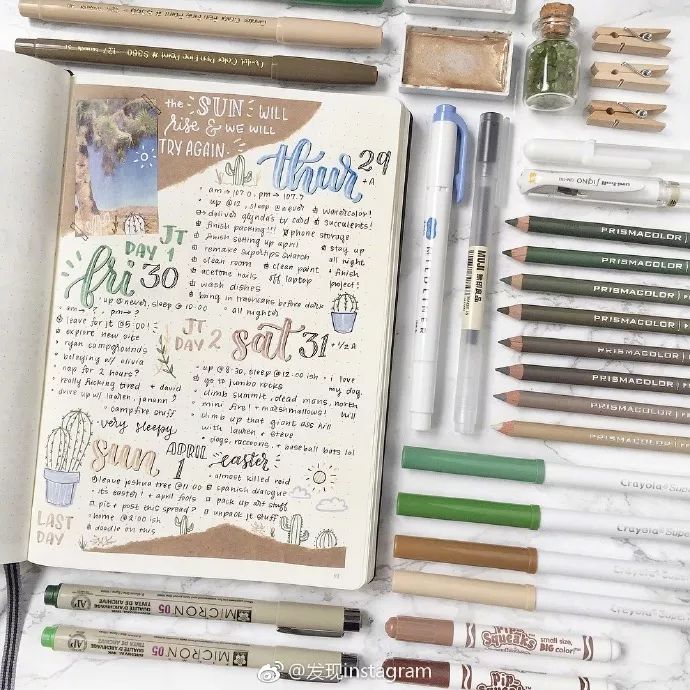 the SUN WILL
rise & WE WILL
TRY AGAIN.
thur 29
+A
• am → 107.0, pm → 107.?
• up @12, sleep @never
watercolor!
deliver glynda's ty card
succulents!
finish packing!!!
phone storage
finish setting up april
stay up
all night
remake supertips swatch
+ finish
project!
clean room
clean paint
off laptop
acetone nails
wash dishes
bring in trashcans before dark
• all nighter
JT
DAY 1
fri 30
• up @never, sleep @ 10:00
• am → ?, pm → ?
leave for jt @5:00!
• explore new site
• ryan campgrounds
• belaying w/ olivia
• nap for 2 hours?
• really fucking tired
+ david
• drive up w/ lauren,
• campfire stuff
• very sleepy
JT
DAY 2
sat 31
• 1/2 A
• up @ 8:30, sleep @12:00 ish
• i love
my dog
go to jumbo rocks
• climb summit, dead mans, north
hill
• mini fire! + marshmallows!
• climb up that giant ass hill
with lauren + steve
• dogs, raccoons, + baseball bats lol
sun
APRIL
1
easter
leave joshua tree @11:00
• its easter! + april fools
pit + post this spread?
• home @2:00 ish
doodle on this
• almost killed reid
spanish dialogue
pack up art stuff
unpack jt stuff
LAST
DAY
MILDLINER
MUJI 無印良品
uni-ball Signo UM-153
PRISMACOLOR
PRISMACOLOR
PRISMACOLOR
PRISMACOLOR
PRISMACOLOR
PRISMACOLOR
PRISMACOLOR
PRISMACOLOR
Crayola Super
Crayola Super
Crayola Super
Crayola Super
Pip Squeaks small size, BIG color!
Pip Squeaks
MICRON 05
MICRON 05
@发现instagram